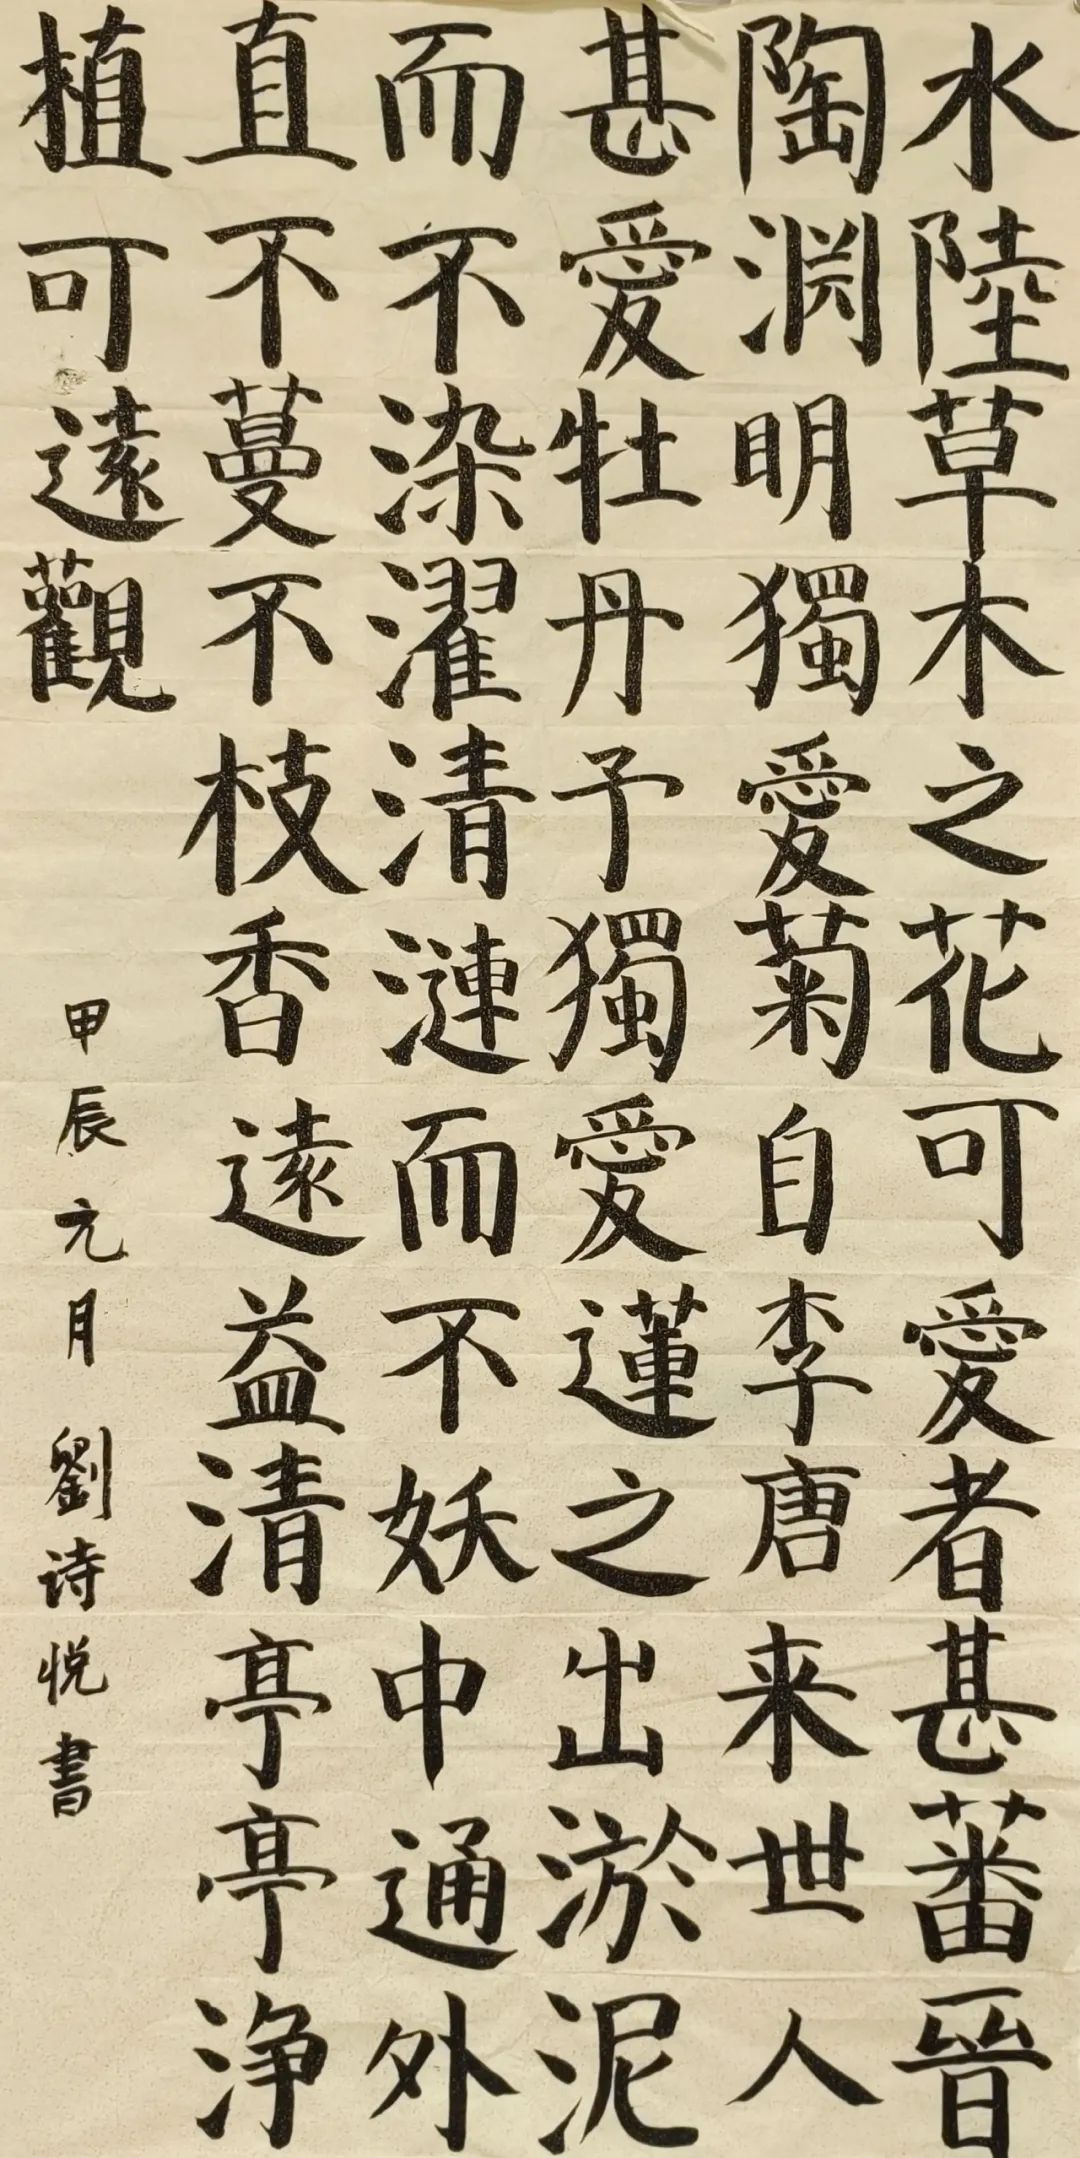 水陸草木之花可愛者甚蕃晉
陶渊明獨愛菊自李唐来世人
甚愛牡丹予獨愛蓮之出淤泥
而不染濯清漣而不妖中通外
直不蔓不枝香遠益清亭亭浄
植可遠觀
甲辰元月劉诗悦書